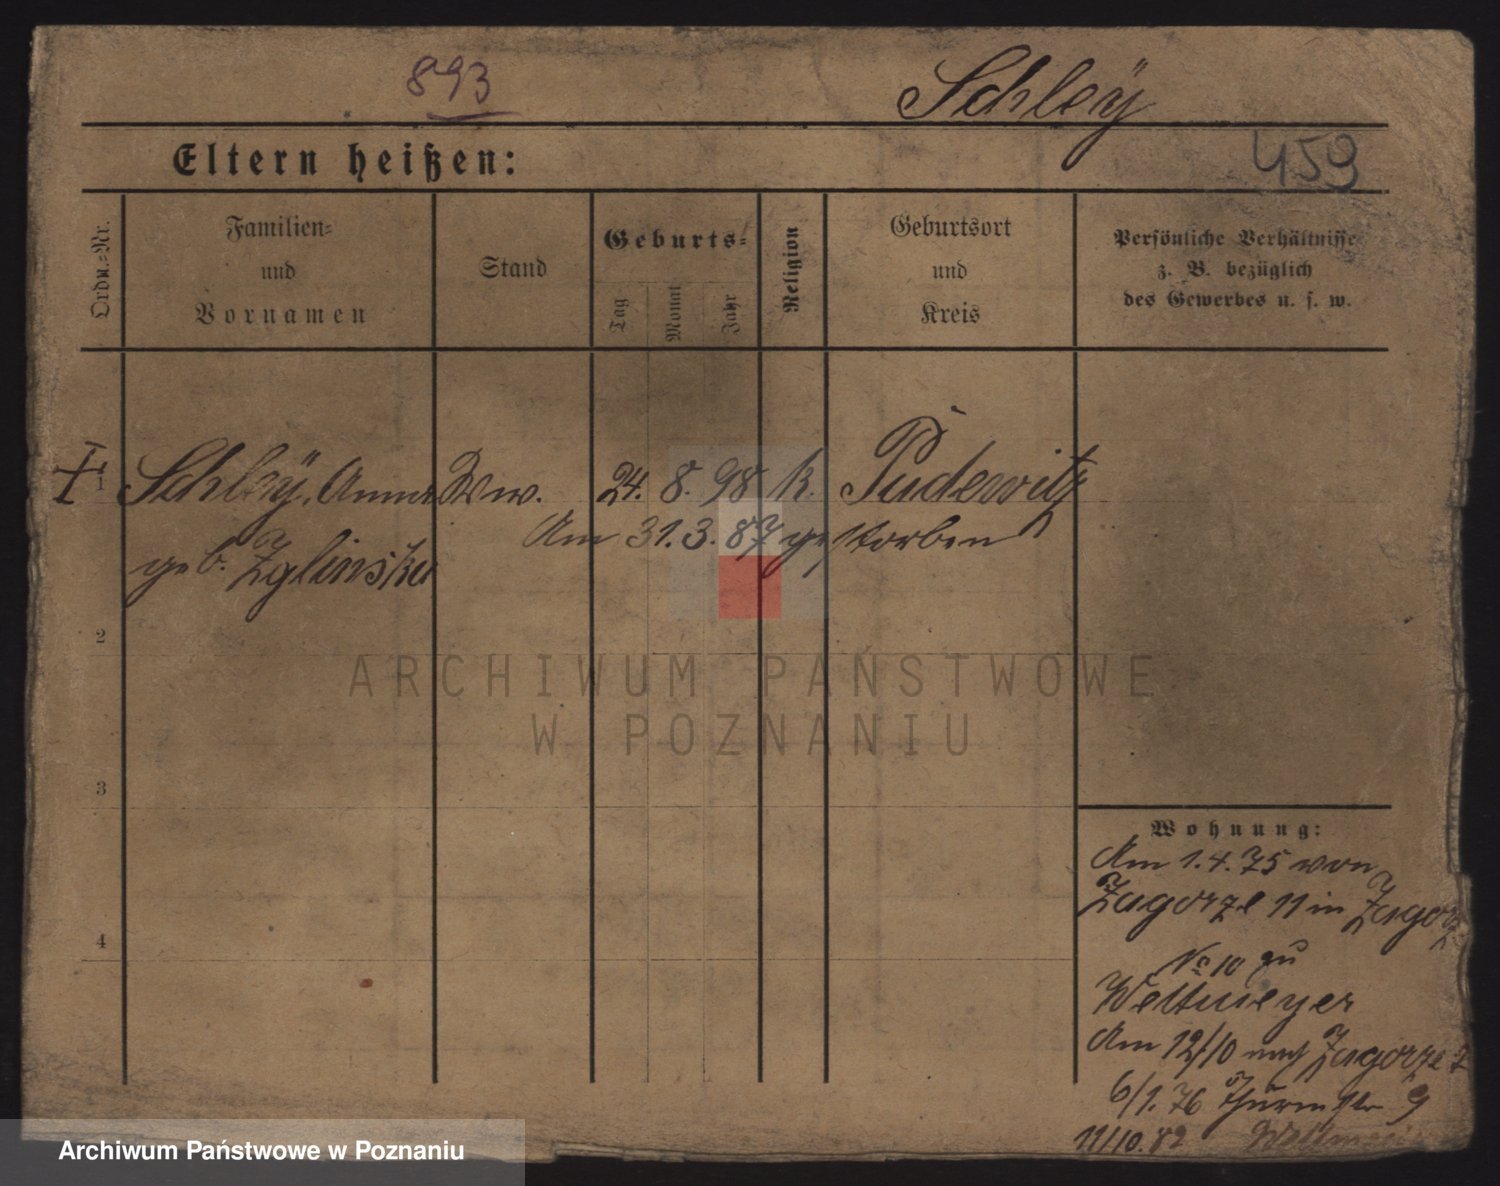 893
Schleÿ
459
Eltern heißen:
Ordn.-Nr.
Familien-
und
Vornamen
Stand
Geburts-
Tag
Monat
Jahr
Religion
Geburtsort
und
Kreis
Persönliche Verhältnisse
z. B. bezüglich
des Gewerbes u. s. w.
1 Schleÿ, Anna Ww. 24. 8. 98 k. Pudewitz
Am 31. 3. 87 gestorben
geb. Zglinska
2
ARCHIWUM PAŃSTWOWE
W POZNANIU
3
Wohnung:
Am 1.4.75 von
Zagorze 11 in Zagorz
No 10 zu
Weltmeyer
Am 12/10 nach Zagorze 2
4
6/1. 76 Thurmstr 9
11/10. 82
Archiwum Państwowe w Poznaniu